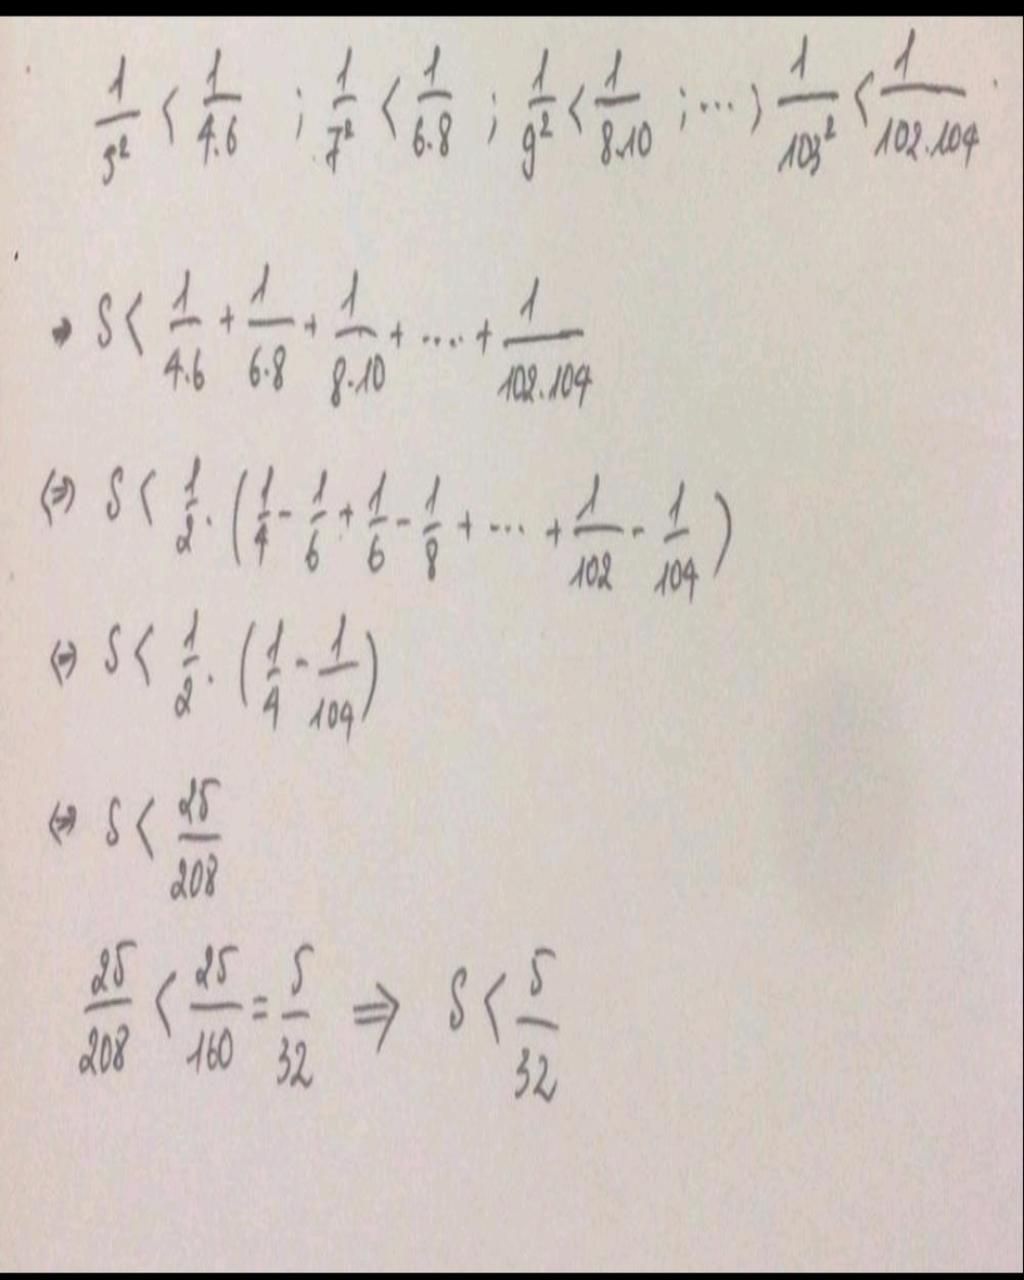 1/5² < 1/4.6 ; 1/7² < 1/6.8 ; 1/9² < 1/8.10 ; ... ; 1/103² < 1/102.104
⇒ S < 1/4.6 + 1/6.8 + 1/8.10 + .... + 1/102.104
⇔ S < 1/2 . (1/4 - 1/6 + 1/6 - 1/8 + ... + 1/102 - 1/104)
⇔ S < 1/2 . (1/4 - 1/104)
⇔ S < 25/208
25/208 < 25/160 = 5/32 ⇒ S < 5/32